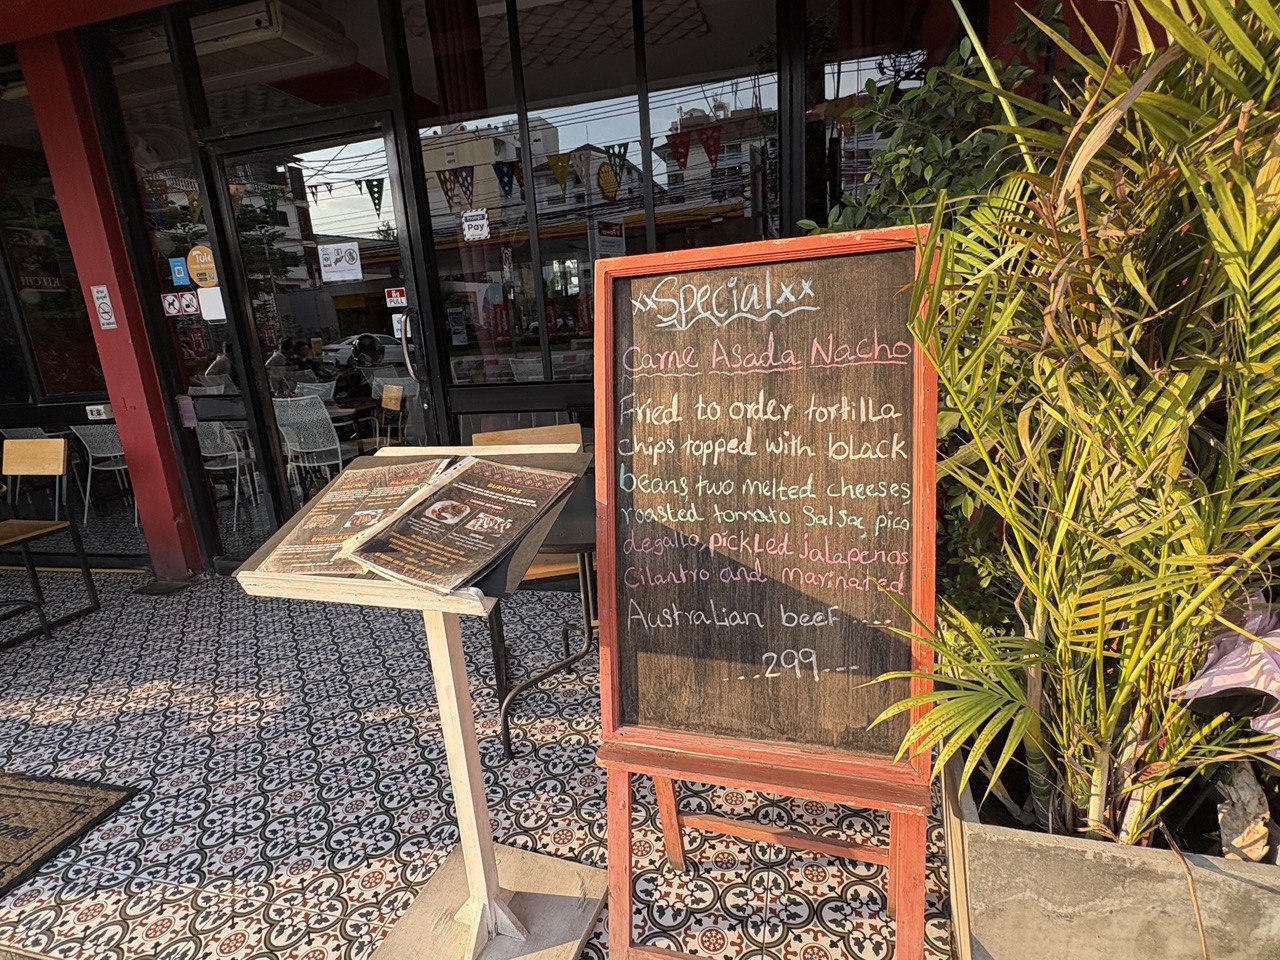 xxSpecialxx
Carne Asada Nacho
Fried to order tortilla
chips topped with black
beans two melted cheeses
roasted tomato salsa, pico
degallo, pickled jalapenos
cilantro and marinated
Australian beef ----
---299---
BURRITOS
FAJITAS
Pay
PULL